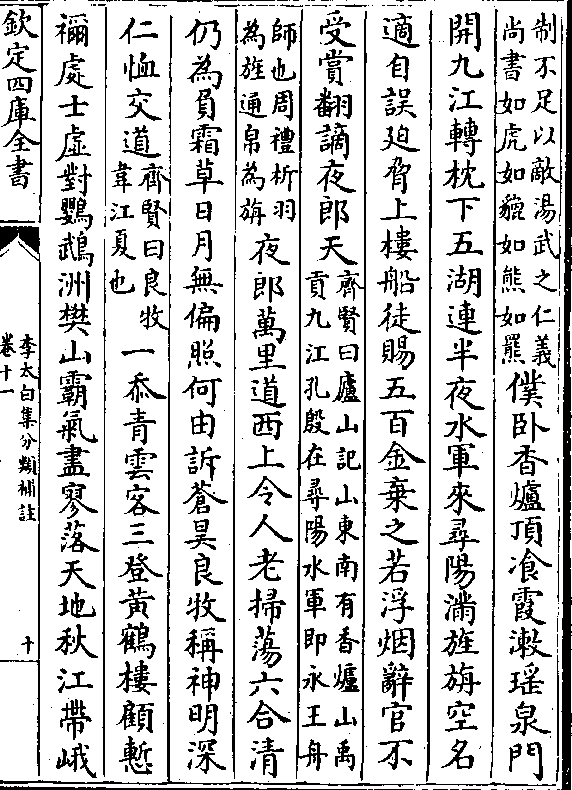 制不足以敵湯武之仁義
尚書如虎如貔如熊如羆
僕卧香爐頂飡霞漱瑶泉門
開九江轉枕下五湖連半夜水軍來尋陽滿旌旃空名
適自誤廹脅上樓船徒賜五百金棄之若浮烟辭官不
受賞翻謫夜郎天
齊賢曰廬山記山東南有香爐山禹
貢九江孔殷在尋陽水軍即永王舟
師也周禮析羽
為旌通帛為旃
夜郎萬里道西上令人老掃蕩六合清
仍為負霜草日月無偏照何由訴蒼昊良牧稱神明深
仁恤交道
齊賢曰良牧
韋江夏也
一忝青雲客三登黄鶴樓顧慙
禰處士虚對鸚鵡洲樊山霸氣盡寥落天地秋江帶峨
欽定四庫全書
李太白集分類補註
卷十一
十